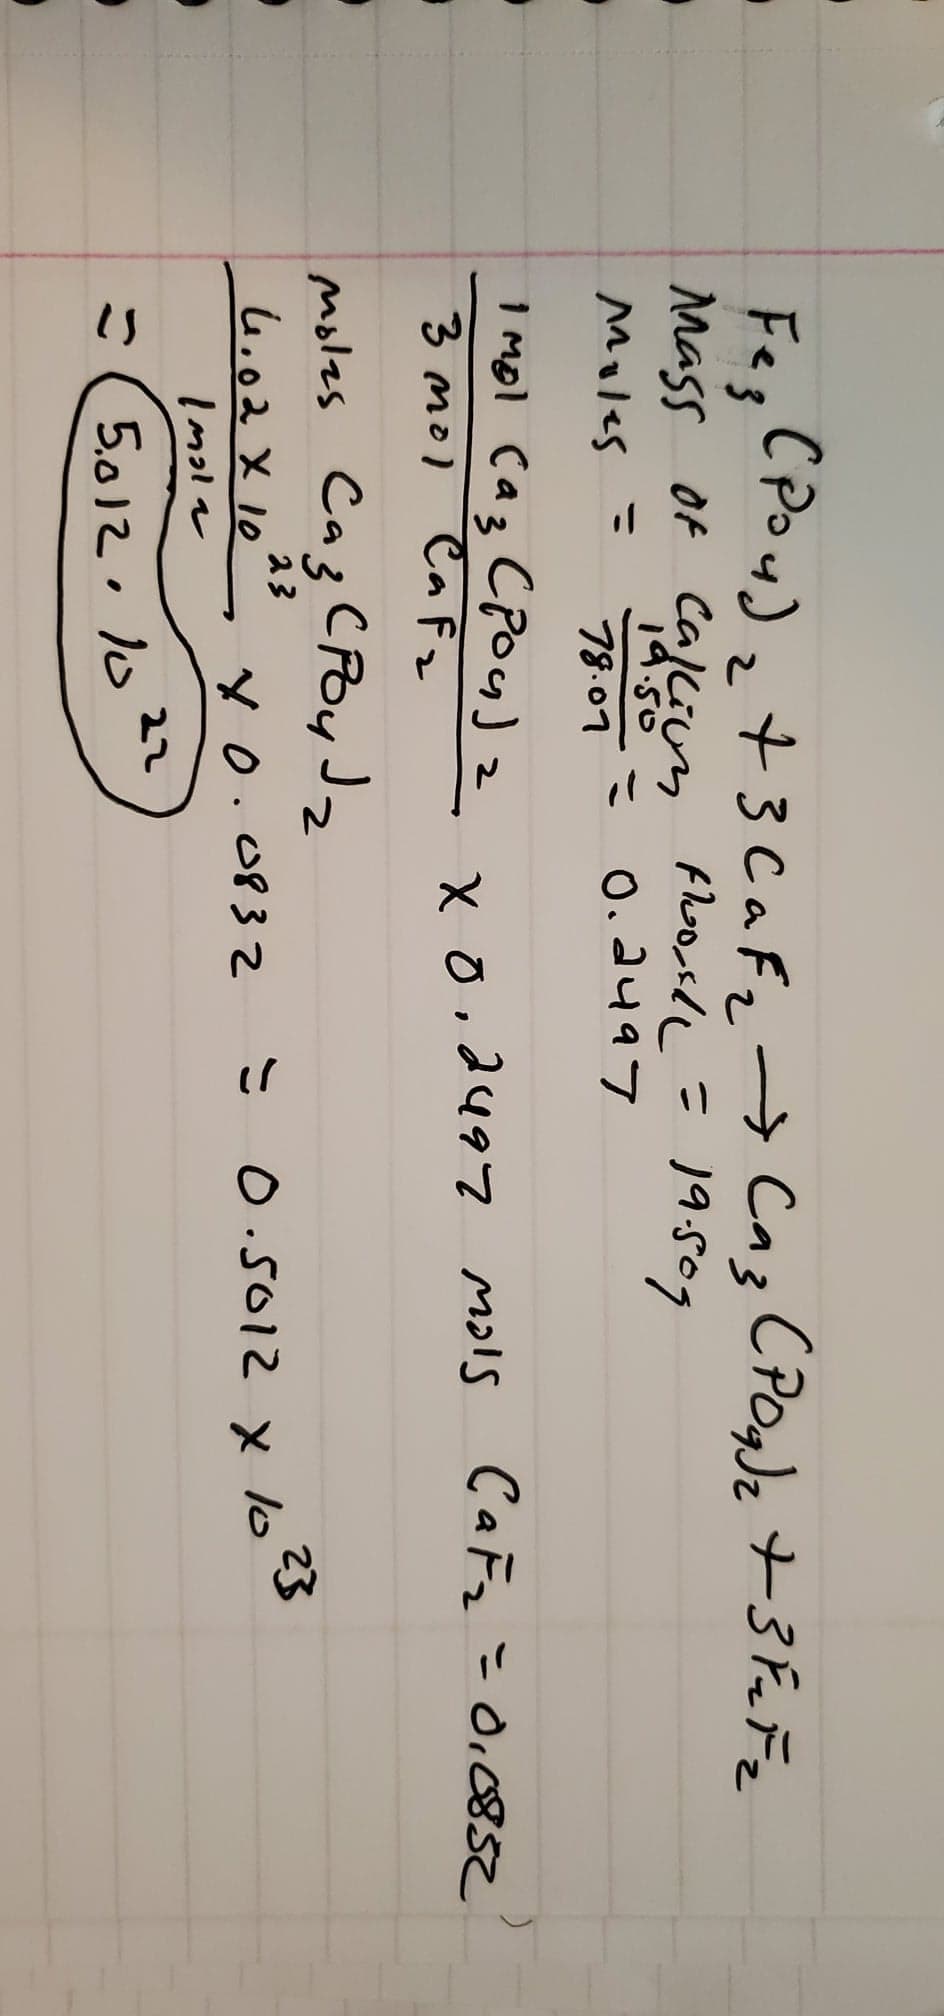 Fe3(PO4)2 + 3CaF2 → Ca3(PO4)2 + 3FeF2
Mass of Calcium fluoride = 19.50g
Moles = 19.50/78.07 = 0.2497
1 mol Ca3(PO4)2 / 3 mol CaF2 x 0.2497 mols CaF2 = 0.0832
moles Ca3(PO4)2
6.02 x 10^23 / 1 mole x 0.0832 = 0.5012 x 10^23
= 5.012 · 10^22